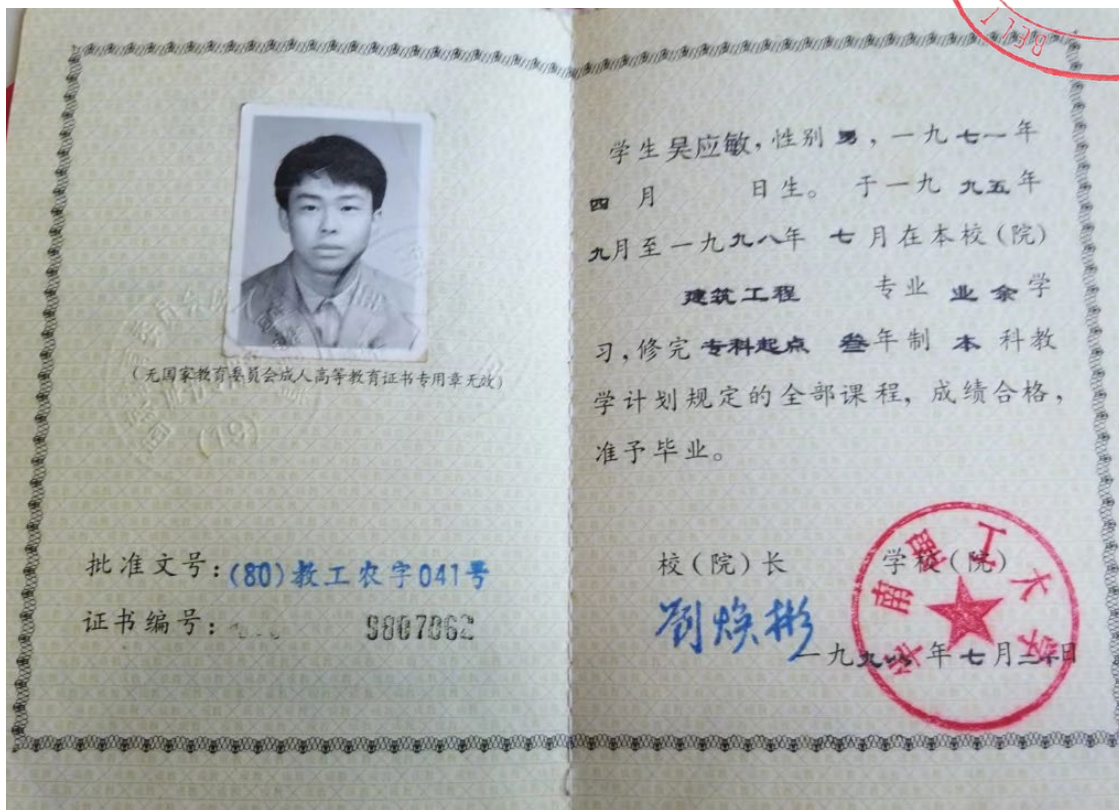 (无国家教育委员会成人高等教育证书专用章无效)
(19)
批准文号:(80)教工农字041号
证书编号: 9807062
学生吴应敏,性别男,一九七一年
四月 日生。于一九九五年
九月至一九九八年七月在本校(院)
建筑工程 专业业余学
习,修完专科起点叁年制本科教
学计划规定的全部课程,成绩合格,
准予毕业。
校(院)长 学校(院)
刘焕彬
华南理工大学
一九九八年七月二十日